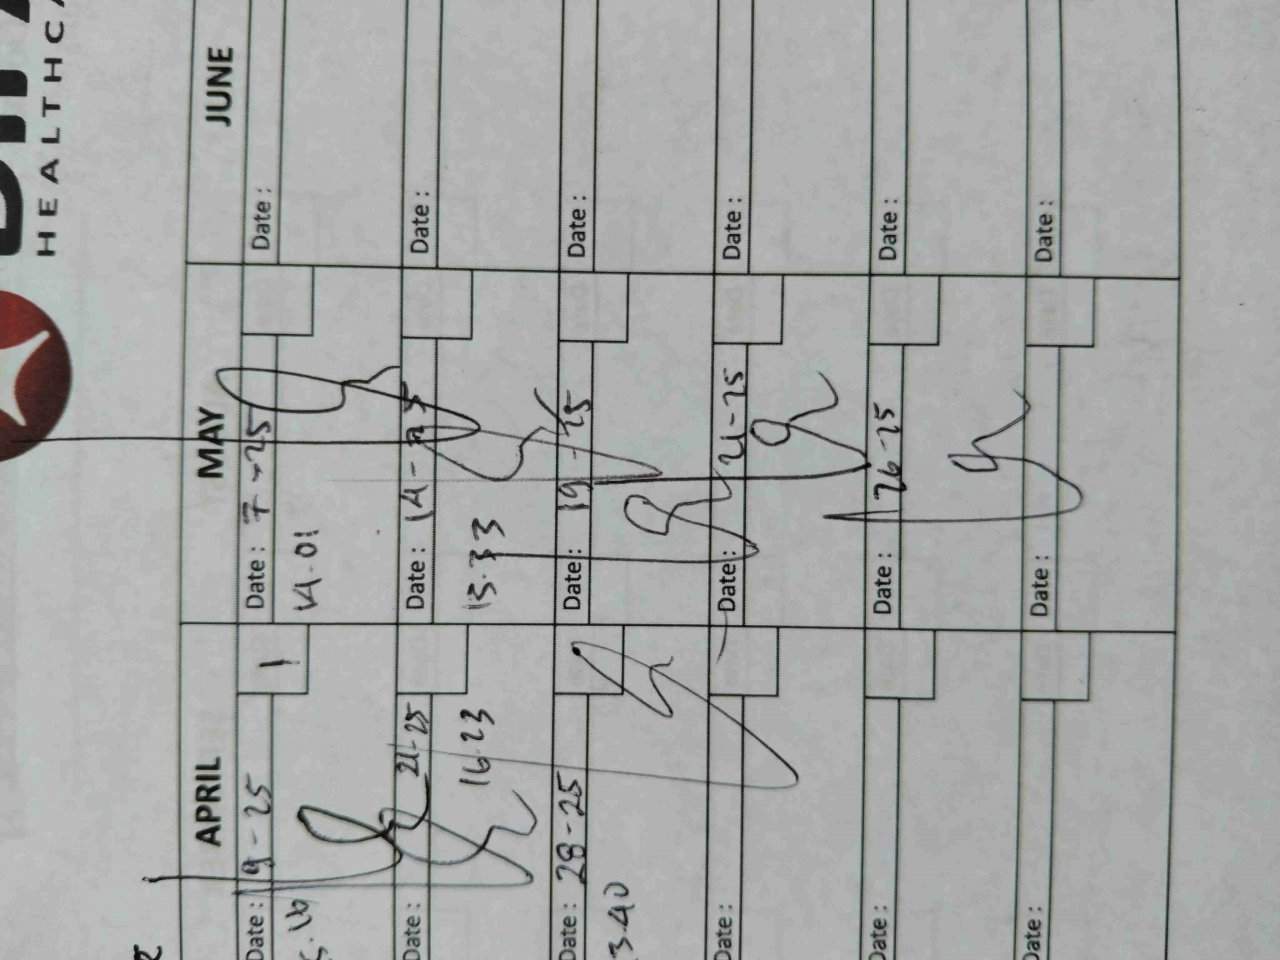 HEALTHCA
APRIL MAY JUNE
Date: 9-25 1 Date: 7-25 Date:
14.01
Date: 21-25 Date: 14-25 Date:
16.23 13.33
Date: 28-25 Date: 19-25 Date:
3.40
Date: Date: 21-25 Date:
Date: Date: 26-25 Date:
Date: Date: Date: